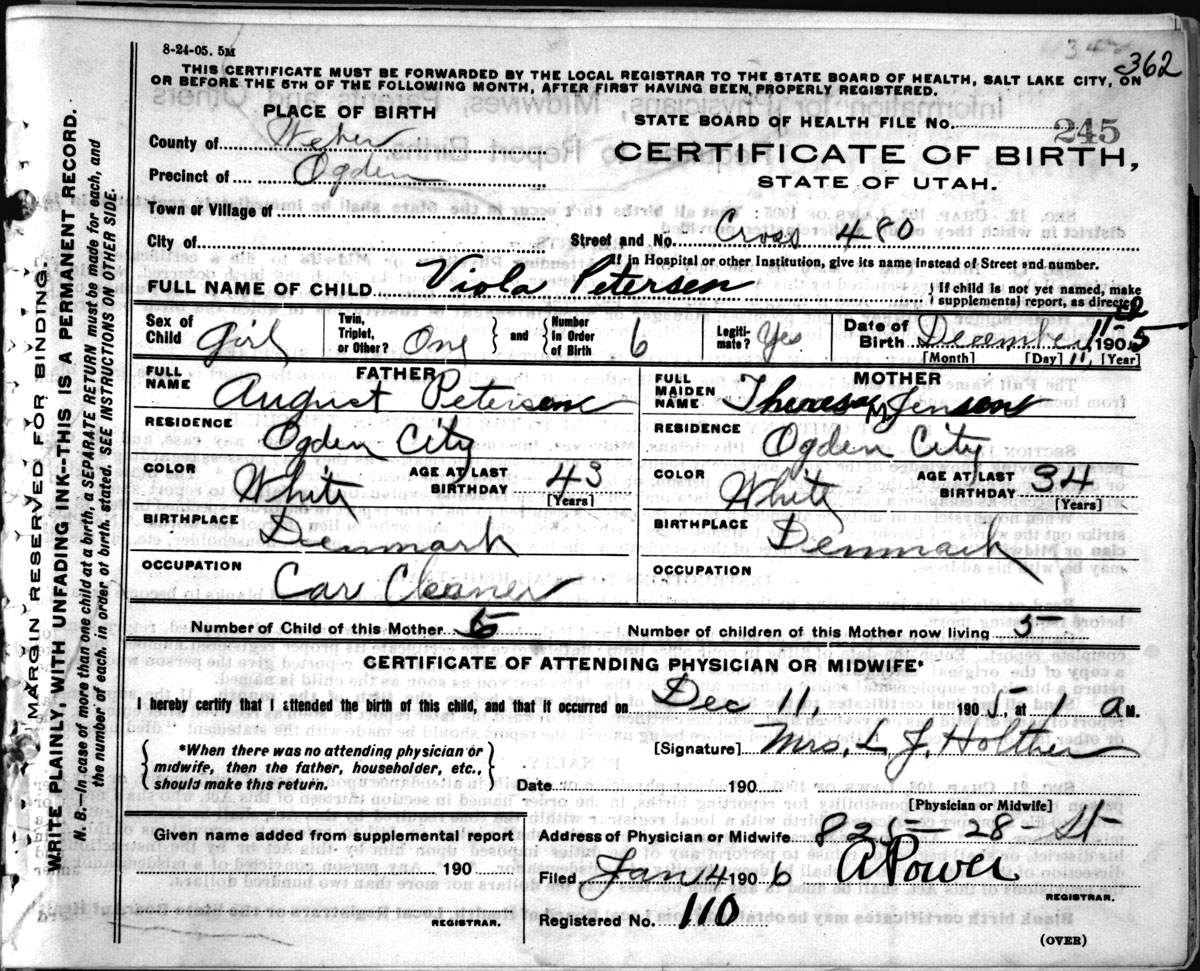 8-24-05. 5M
362
THIS CERTIFICATE MUST BE FORWARDED BY THE LOCAL REGISTRAR TO THE STATE BOARD OF HEALTH, SALT LAKE CITY, ON
OR BEFORE THE 5TH OF THE FOLLOWING MONTH, AFTER FIRST HAVING BEEN PROPERLY REGISTERED.
PLACE OF BIRTH
STATE BOARD OF HEALTH FILE NO. 245
County of Weber
CERTIFICATE OF BIRTH,
Precinct of Ogden
STATE OF UTAH.
Town or Village of
City of
Street and No. Cross 480
If in Hospital or other Institution, give its name instead of Street and number.
FULL NAME OF CHILD Viola Petersen
If child is not yet named, make
supplemental report, as directed
Sex of Child Girl
Twin, Triplet, or Other? One
and Number in Order of Birth 6
Legitimate? Yes
Date of Birth December 11 1905
[Month] [Day] 11, [Year]
FATHER
FULL NAME August Petersen
RESIDENCE Ogden City
COLOR White AGE AT LAST BIRTHDAY 43 [Years]
BIRTHPLACE Denmark
OCCUPATION Car Cleaner
MOTHER
FULL MAIDEN NAME Theresa M Jensen
RESIDENCE Ogden City
COLOR White AGE AT LAST BIRTHDAY 34 [Years]
BIRTHPLACE Denmark
OCCUPATION
Number of Child of this Mother
Number of children of this Mother now living
CERTIFICATE OF ATTENDING PHYSICIAN OR MIDWIFE*
I hereby certify that I attended the birth of this child, and that it occurred on Dec 11, 1905, at 1 a M.
*When there was no attending physician or
midwife, then the father, householder, etc.,
should make this return.
[Signature] Mrs. L J. Holther
Date 190
[Physician or Midwife]
Given name added from supplemental report
190
REGISTRAR.
Address of Physician or Midwife 28 St
Filed Jan 4 1906 A Power
REGISTRAR.
Registered No. 110
(OVER)
MARGIN RESERVED FOR BINDING.
WRITE PLAINLY, WITH UNFADING INK--THIS IS A PERMANENT RECORD.
N. B.—In case of more than one child at a birth, a SEPARATE RETURN must be made for each, and
the number of each, in order of birth, stated. SEE INSTRUCTIONS ON OTHER SIDE.